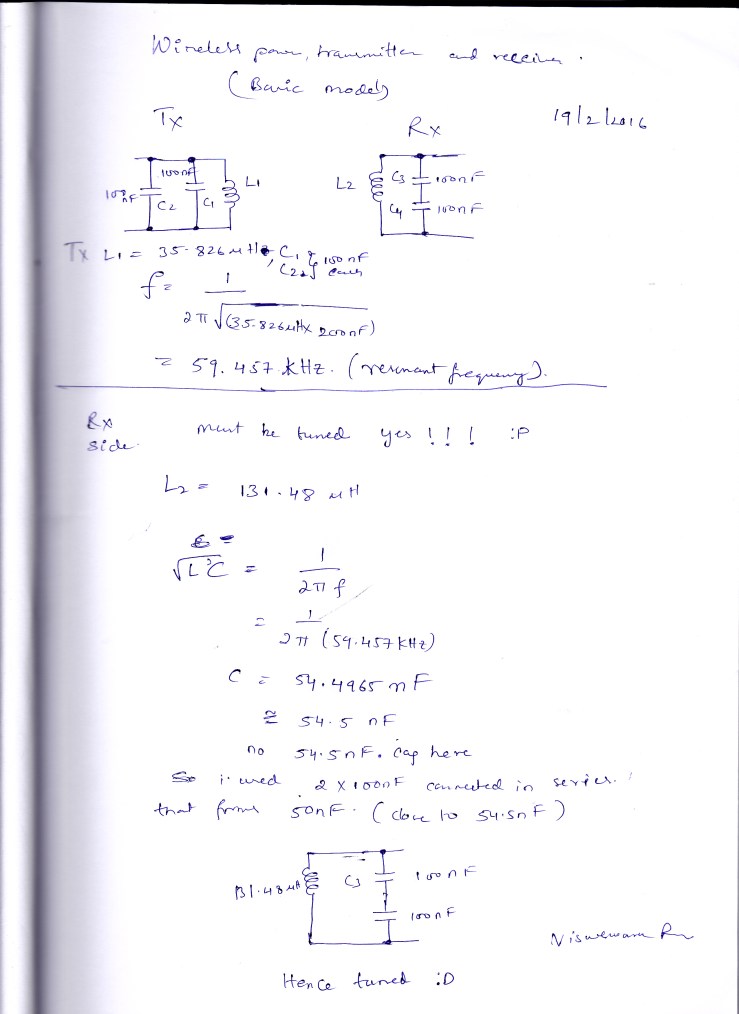 Wireless power, transmitter and receiver.
(Basic model)
19/2/2016
Tx
Rx
100nF
100nF
C2
C1
L1
L2
C3
100nF
C4
100nF
Tx L1 = 35.826 μH, C1 & C2 100nF each
f = 1 / 2π √(35.826μH x 200nF)
= 59.457 kHz. (resonant frequency).
Rx side
must be tuned yes !!! :P
L2 = 131.48 μH
√LC = 1 / 2π f
= 1 / 2π (59.457kHz)
C = 54.4965 nF
≅ 54.5 nF
no 54.5nF. cap here
So i used 2 x 100nF connected in series.
that forms 50nF. (close to 54.5nF)
131.48μH
C3
100nF
100nF
Hence tuned :D